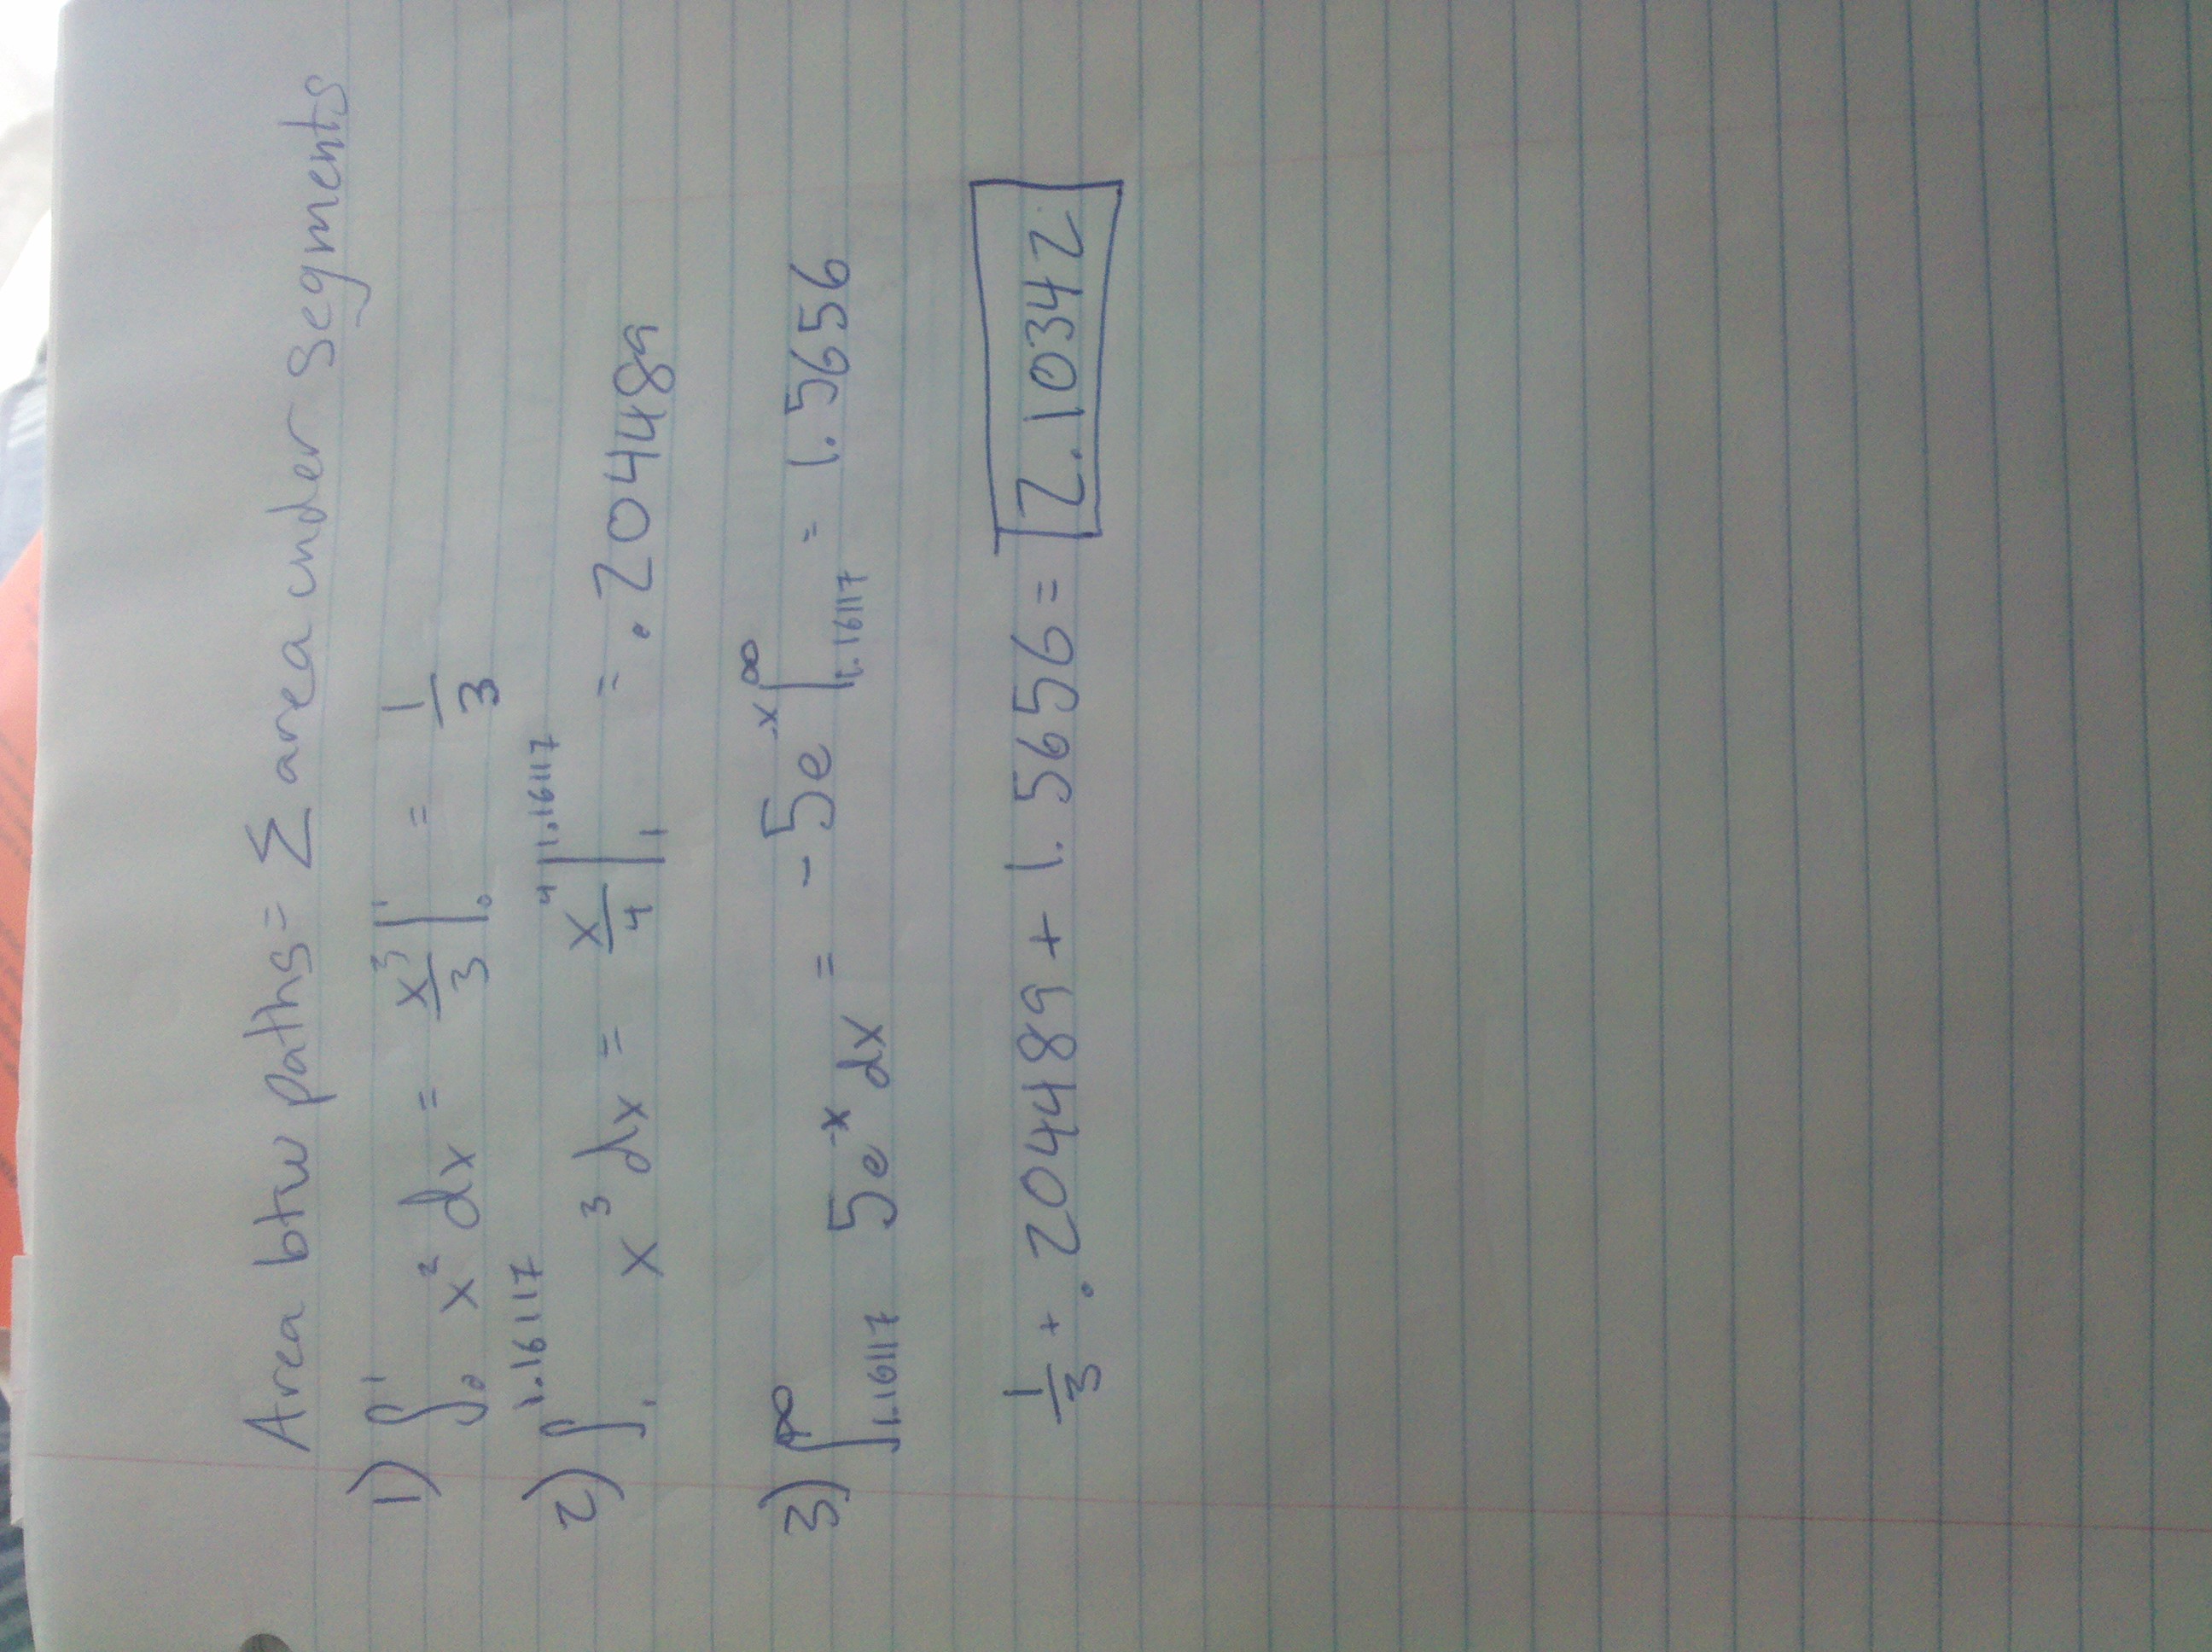 Area btw paths = Σ area under segments
1) ∫₀¹ x² dx = x³/3 |₀¹ = 1/3
2) ∫₁^1.16117 x³ dx = x⁴/4 |₁^1.16117 = .204489
3) ∫_1.16117^∞ 5e^-x dx = -5e^-x |_1.16117^∞ = 1.5656
1/3 + .204489 + 1.5656 = 2.10342